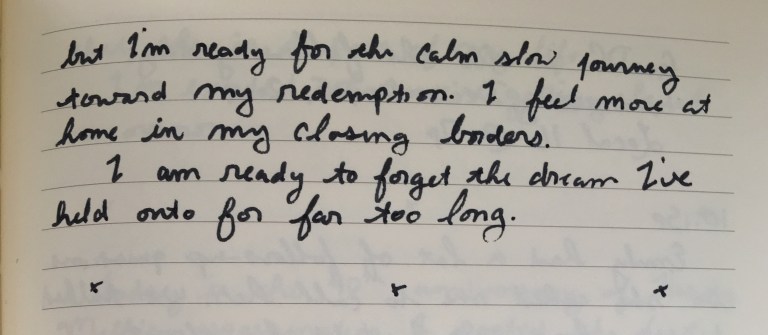 but I'm ready for the calm slow journey
toward my redemption. I feel more at
home in my closing borders.
I am ready to forget the dream I've
held onto for far too long.
x x x